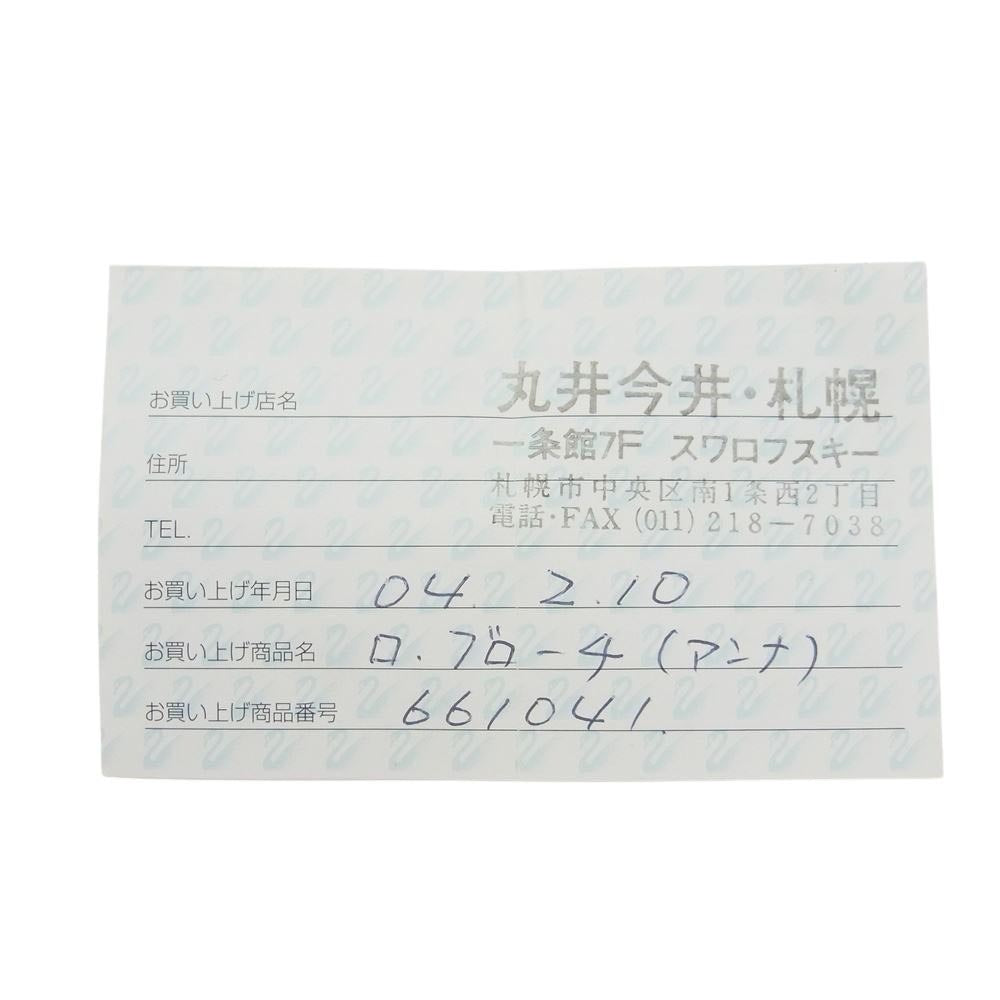 お買い上げ店名 丸井今井・札幌
一条館7F スワロフスキー
住所 札幌市中央区南1条西2丁目
TEL. 電話・FAX (011) 218-7038
お買い上げ年月日 04. 2.10
お買い上げ商品名 ロ.ブローチ(アンナ)
お買い上げ商品番号 661041.